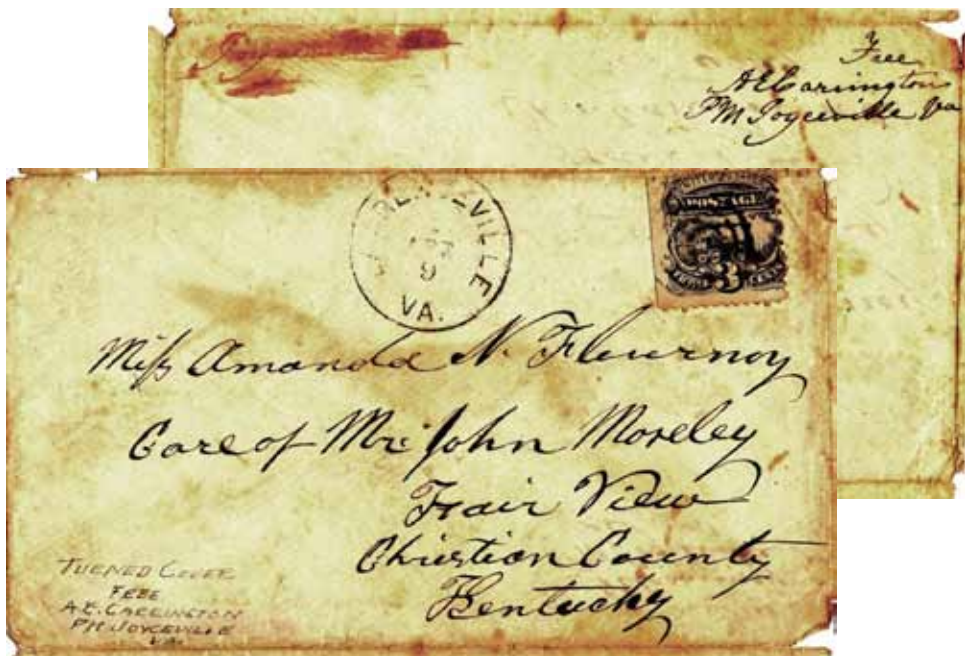 Free
A E Carrington
PM Joyceville Va
VILLE
9
VA.
POSTAGE
3
CENTS
Miss Amanda N. Flournoy
Care of Mr. John Moseley
Fair View
Christian County
Kentucky
TURNED COVER
FREE
A.E. CARRINGTON
PM JOYCEVILLE
VA.